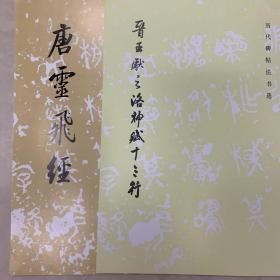 唐靈飛經
晉王獻之洛神賦十三行
历代碑帖法书选